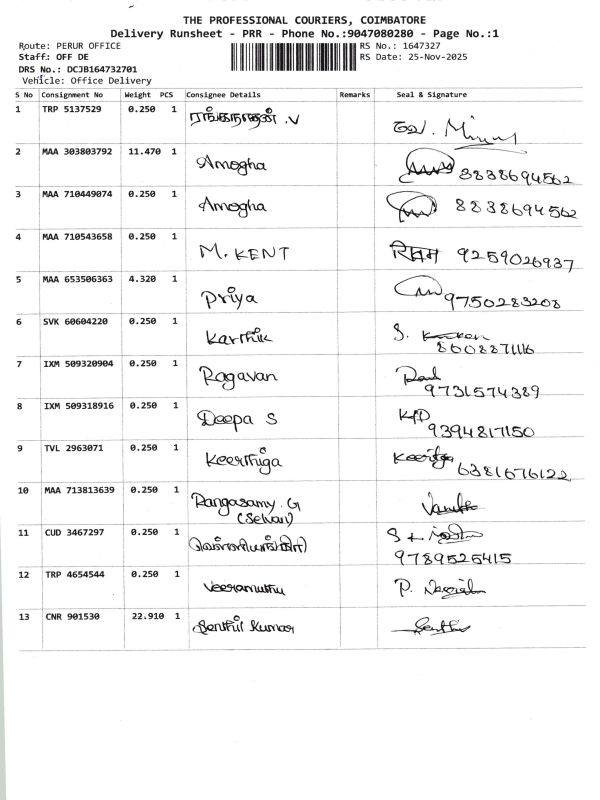 THE PROFESSIONAL COURIERS, COIMBATORE
Delivery Runsheet - PRR - Phone No.:9047080280 - Page No.:1
Route: PERUR OFFICE RS No.: 1647327
Staff: OFF DE RS Date: 25-Nov-2025
DRS No.: DCJB164732701
Vehicle: Office Delivery
S No Consignment No Weight PCS Consignee Details Remarks Seal & Signature
1 TRP 5137529 0.250 1 ரங்கநாதன் .V
2 MAA 303803792 11.470 1 Amogha 8838694562
3 MAA 710449074 0.250 1 Amogha 8838694562
4 MAA 710543658 0.250 1 M. KENT 9259026937
5 MAA 653506363 4.320 1 Priya 9750283208
6 SVK 60604220 0.250 1 Karthik S. 8608871116
7 IXM 509320904 0.250 1 Ragavan 9731574389
8 IXM 509318916 0.250 1 Deepa S 9394817150
9 TVL 2963071 0.250 1 Keerthiga 6381676122
10 MAA 713813639 0.250 1 Rangasamy . G
(Sekar)
11 CUD 3467297 0.250 1
9789525415
12 TRP 4654544 0.250 1 Veeramuthu P.
13 CNR 901530 22.910 1 Senthil Kumar